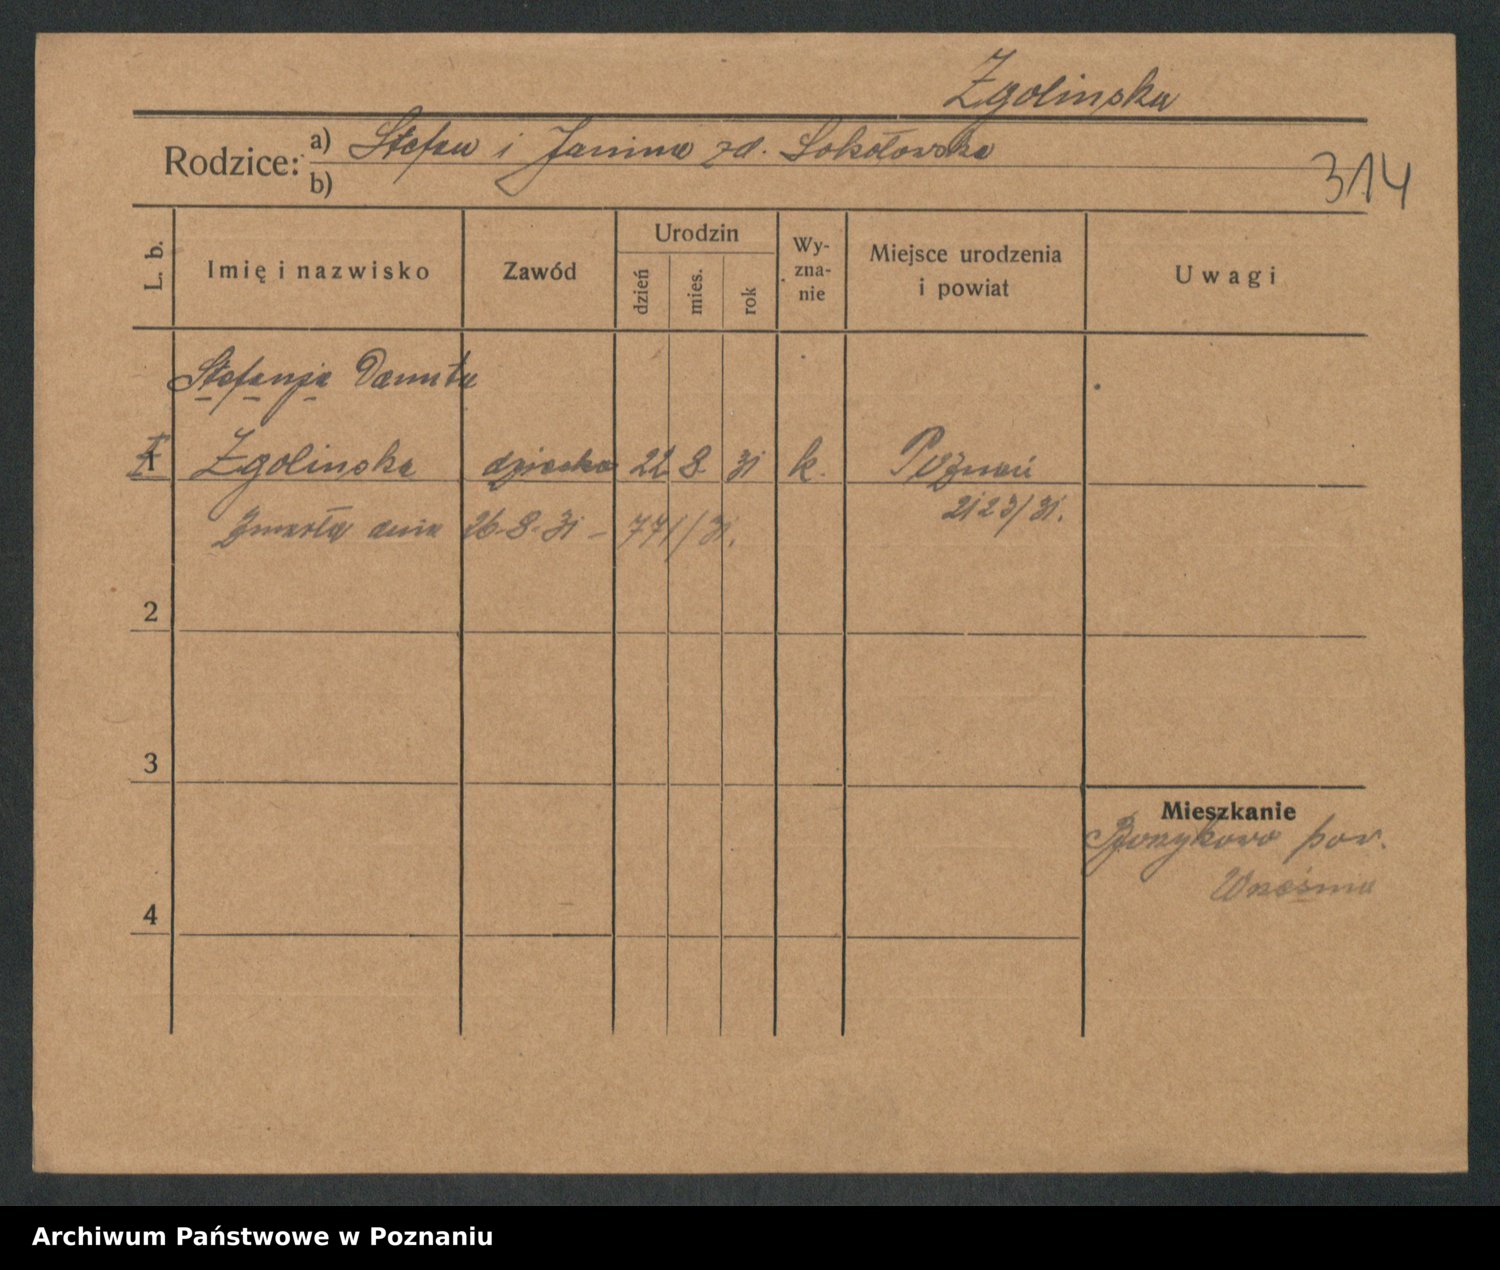 Zgolinska
Rodzice: a) Stefan i Janina zd. Sokołowska
b)
314
L. b. Imię i nazwisko Zawód Urodzin dzień mies. rok Wy-zna-nie Miejsce urodzenia i powiat Uwagi
Stefanja Danuta
1 Zgolinska dziecko 22 8. 31 k. Poznań
2123/31.
Zmarła dnia 26-8-31 - 771/31.
2
3
Mieszkanie
pow.
Września
4
Archiwum Państwowe w Poznaniu